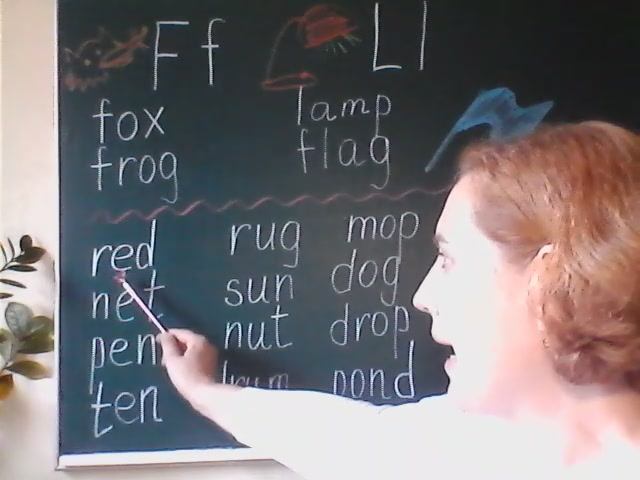 Ff Ll
fox lamp
frog flag
red rug mop
net sun dog
pen nut drop
ten drum pond